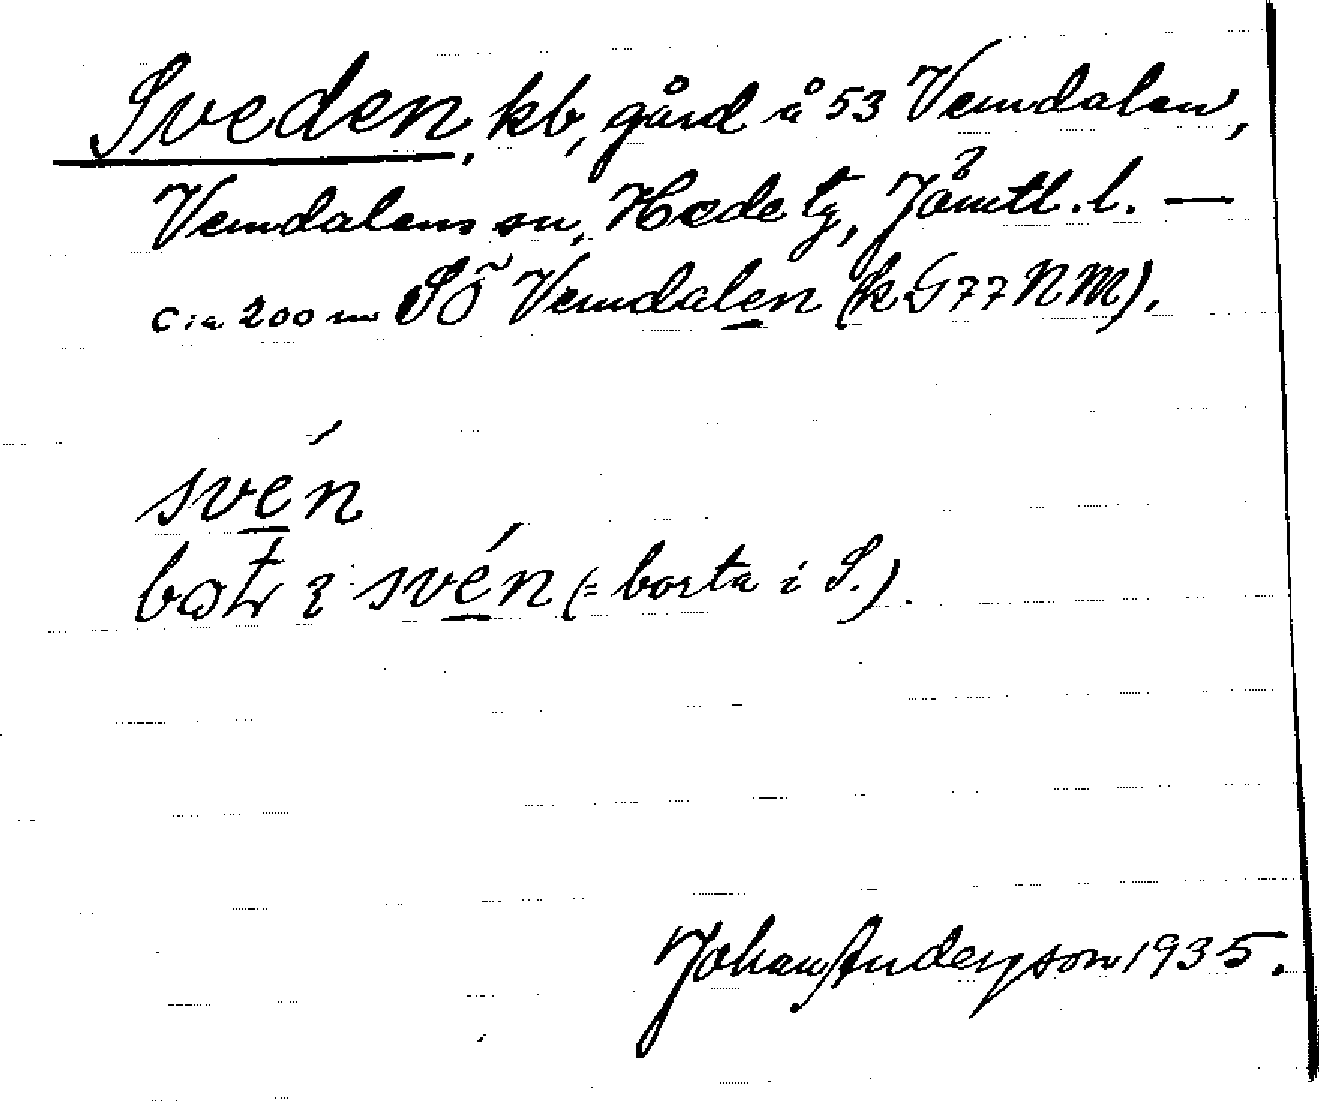 Sveden, kb, gård å 53 Vemdalen,
Vemdalens sn, Hede tg, Jämtl. l. —
cia 200 m SÖ Vemdalen (k G 77 NM).
svén
svén (= borta i S.)
Johan Anderson 1935.